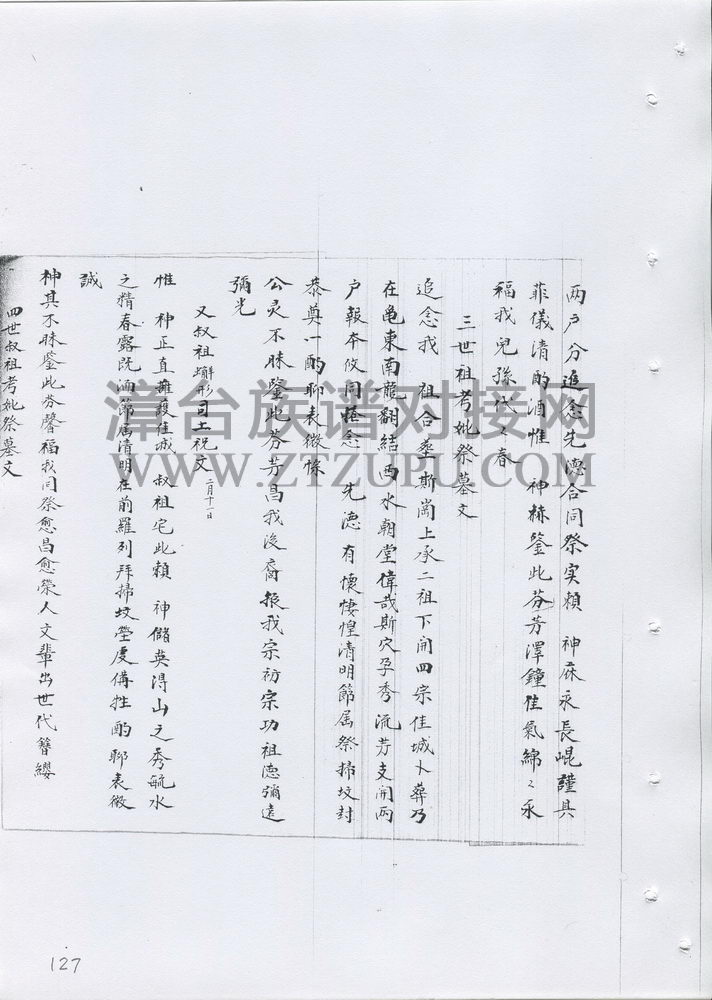 两户分追念先德合同祭实賴 神庥永長崐謹具
菲儀清酌酒惟 神赫鉴此芬芳澤鐘佳氣綿〻永
福我兒孫代〻春
三世祖考妣祭墓文
追念我 祖合塟斯崗上承二祖下開四宗佳城卜葬乃
在龟東南龍翻結西水朝堂偉哉斯穴孕秀流芳支開两
户報夲攸同恒念 先德有懷悽惶清明節届祭掃坟封
恭奠一酌聊表微悰
公灵不昧鍳此芬芳昌我後裔振我宗祊宗功祖德弥遠
彌光
又叔祖塀形司土祝文 二月十一日
惟 神正直雍護佳城 叔祖宅此賴 神儲英淂山之秀毓水
之精春露既濡節届清明在前羅列拜掃坟塋虔俻牲酌聊表微
誠
神其不昧鉴此芬馨福我同祭愈昌愈榮人文輩出世代簪纓
四世叔祖考妣祭墓文
漳台族谱对接网
WWW.ZTZUPU.COM
127